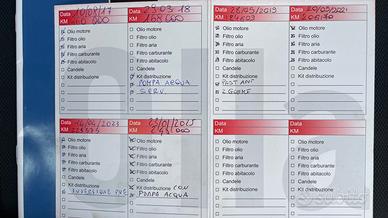 Data 10/08/17
KM
Olio motore
Filtro olio
Filtro aria
Filtro carburante
Filtro abitacolo
Candele
Kit distribuzione
Data 23-03-18
KM 168.000
Olio motore
Filtro olio
Filtro aria
Filtro carburante
Filtro abitacolo
Candele
Kit distribuzione
POMPA ACQUA
SERV.
Data 28/05/2019
KM
Olio motore
Filtro olio
Filtro aria
Filtro carburante
Filtro abitacolo
Candele
Kit distribuzione
Data 20/05/2021
KM
Olio motore
Filtro olio
Filtro aria
Filtro carburante
Filtro abitacolo
Candele
Kit distribuzione
Data
KM
Olio motore
Filtro olio
Filtro aria
Filtro carburante
Filtro abitacolo
Candele
Kit distribuzione
Data
KM
Olio motore
Filtro olio
Filtro aria
Filtro carburante
Filtro abitacolo
Candele
Kit distribuzione CON
POMPA ACQUA
Data
KM
Olio motore
Filtro olio
Filtro aria
Filtro carburante
Filtro abitacolo
Candele
Kit distribuzione
Data
KM
Olio motore
Filtro olio
Filtro aria
Filtro carburante
Filtro abitacolo
Candele
Kit distribuzione